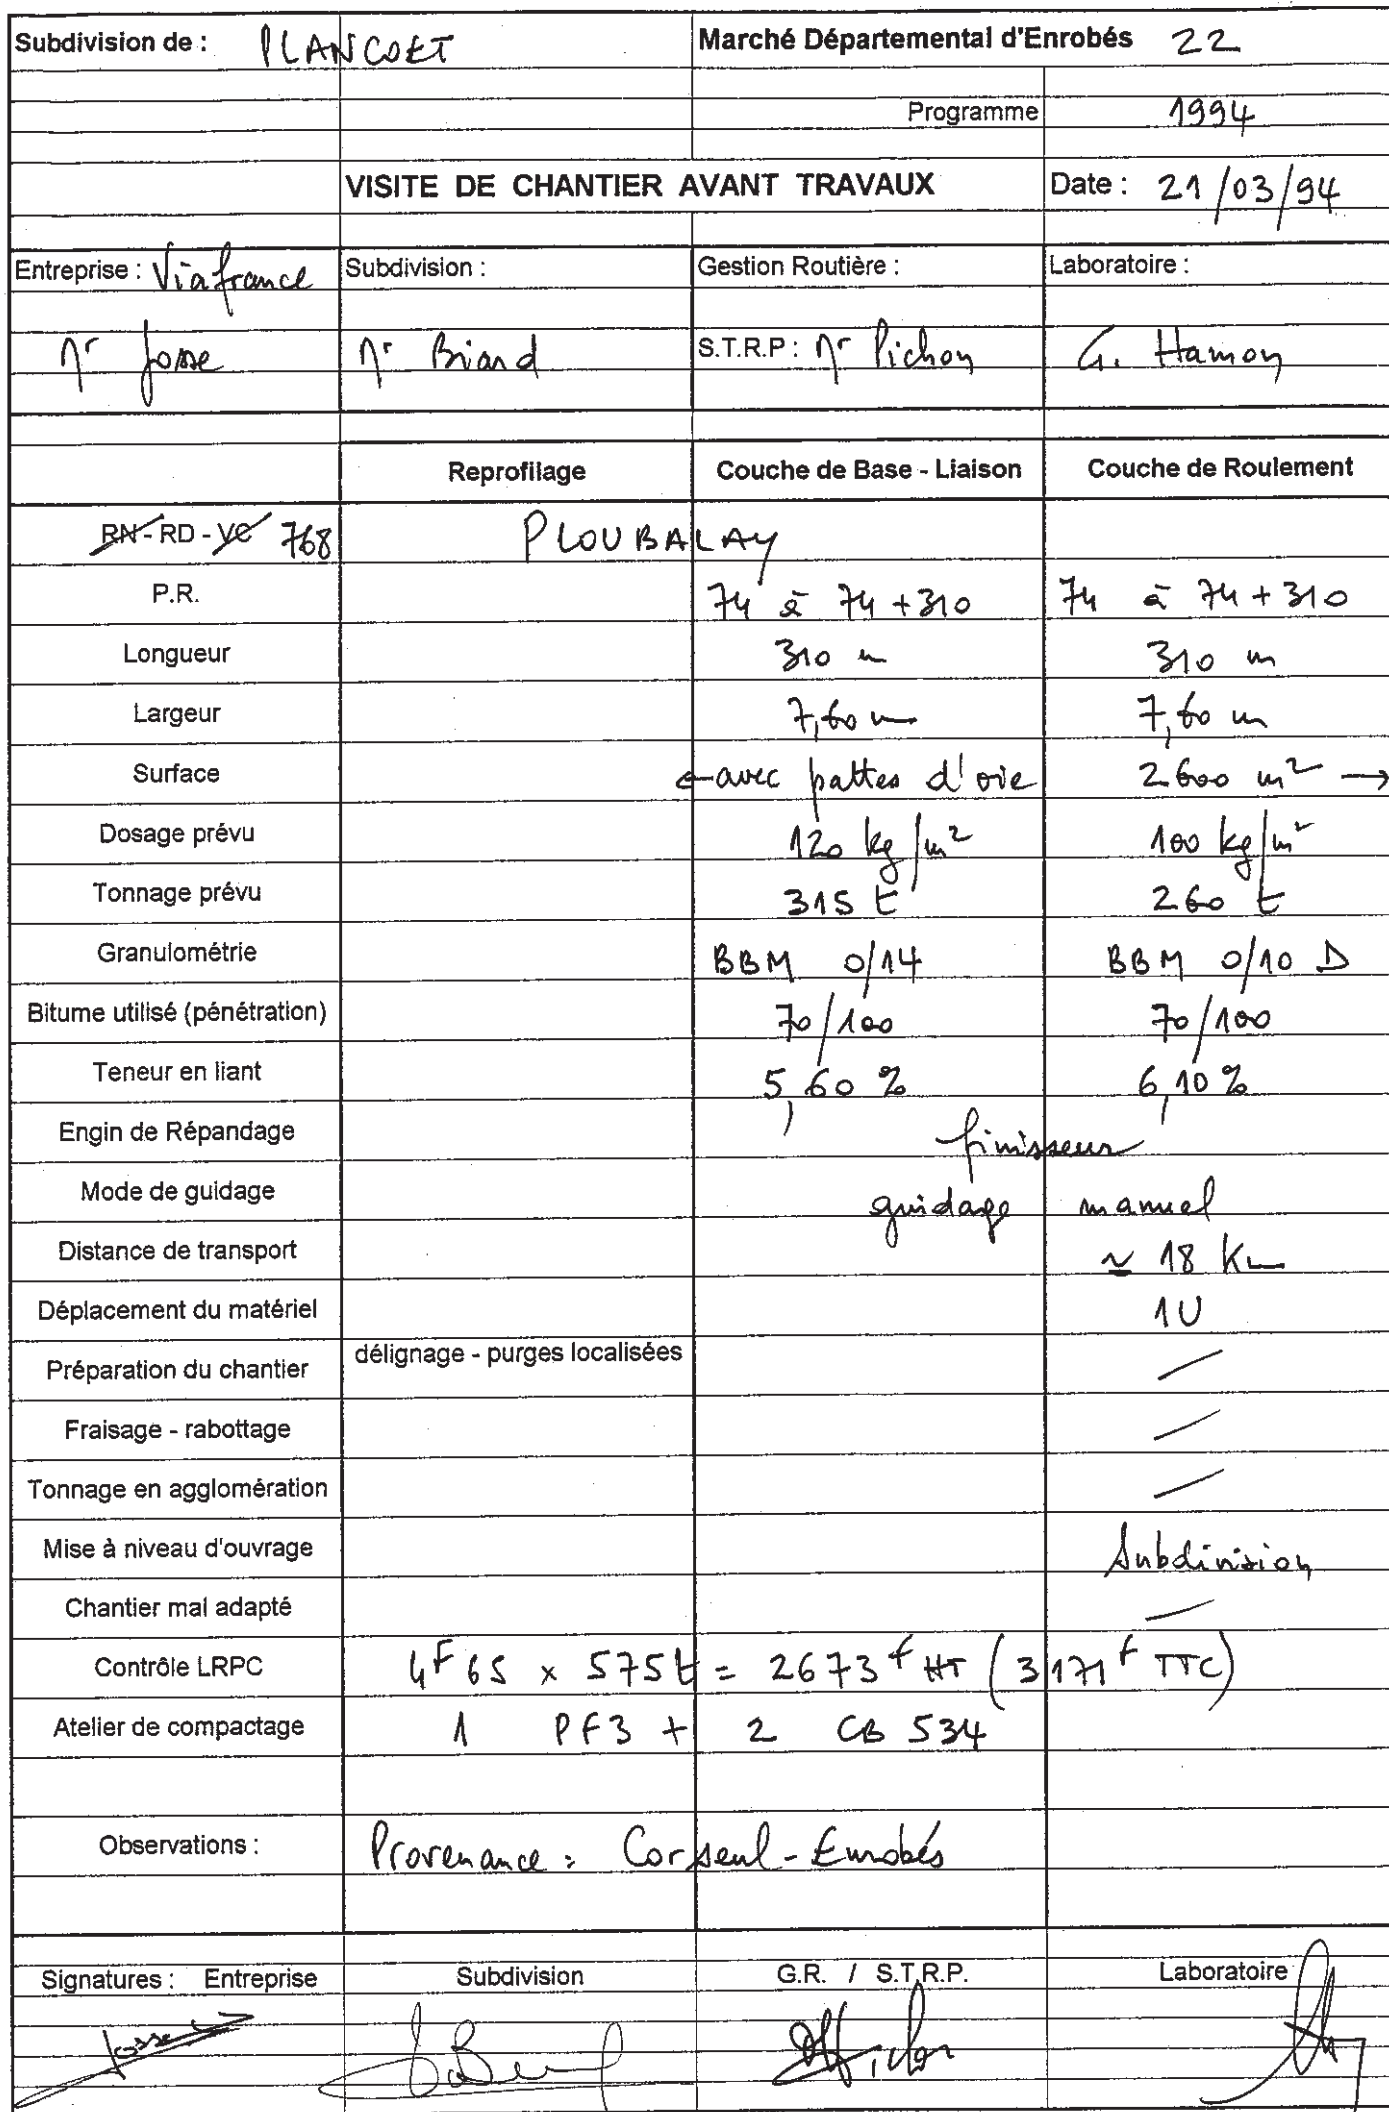 Subdivision de : PLANCOET Marché Départemental d'Enrobés 22
Programme 1994
VISITE DE CHANTIER AVANT TRAVAUX Date : 21/03/94
Entreprise : Viafrance Subdivision : Gestion Routière : Laboratoire :
Mr Josse Mr Briand S.T.R.P : Mr Pichon G. Hamon
Reprofilage Couche de Base - Liaison Couche de Roulement
RN - RD - VC 768 PLOUBALAY
P.R. 74 à 74+310 74 à 74+310
Longueur 310 m 310 m
Largeur 7,60 m 7,60 m
Surface ← avec pattes d'oie 2600 m² →
Dosage prévu 120 kg/m² 100 kg/m²
Tonnage prévu 315 t 260 t
Granulométrie BBM 0/14 BBM 0/10 D
Bitume utilisé (pénétration) 70/100 70/100
Teneur en liant 5,60 % 6,10 %
Engin de Répandage finisseur
Mode de guidage guidage manuel
Distance de transport ≃ 18 Km
Déplacement du matériel 1U
Préparation du chantier délignage - purges localisées /
Fraisage - rabottage /
Tonnage en agglomération /
Mise à niveau d'ouvrage Subdivision
Chantier mal adapté /
Contrôle LRPC 4F65 x 575t = 2673 F HT (3171 F TTC)
Atelier de compactage 1 PF3 + 2 CB 534
Observations : Provenance : Corseul-Enrobés
Signatures : Entreprise Subdivision G.R. / S.T.R.P. Laboratoire
Josse